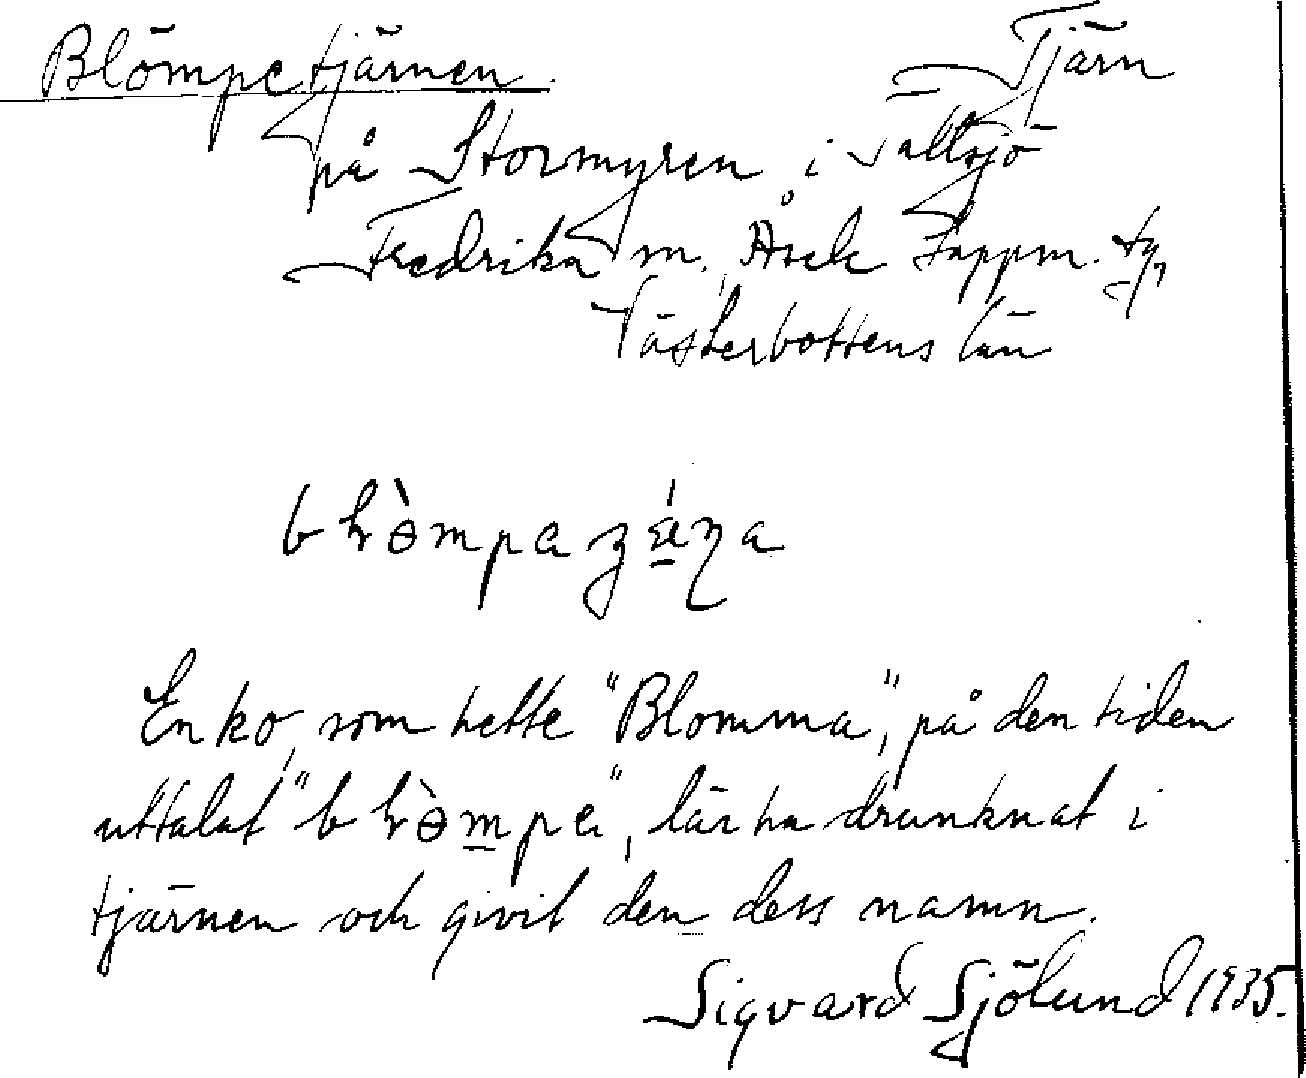 Blömpetjärnen. Tjärn
på Stormyren i Tallsjö
Fredrika sn. Åsele Lappm. tg,
Västerbottens län
En ko, som hette "Blomma", på den tiden
uttalat " ", lär ha drunknat i
tjärnen och givit den dess namn.
Sigvard Sjölund 1935.